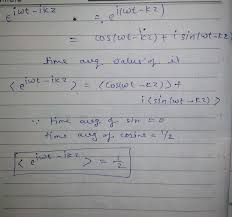 e^{iwt-ikz} = e^{i(wt-kz)}
= cos(wt-kz) + i sin(wt-kz)
time avg value of it
⟨e^{iwt-ikz}⟩ = ⟨cos(wt-kz)⟩ +
i⟨sin(wt-kz⟩
∵ time avg of sin = 0
time avg of cosine = 1/2
⟨e^{iwt-ikz}⟩ = 1/2